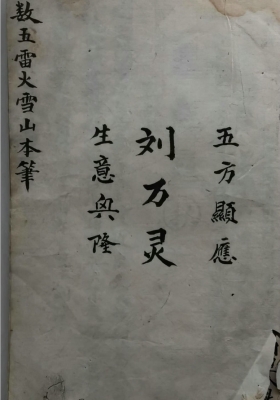 五方顯應
刘万灵
生意與隆
数五雷火雪山本筆